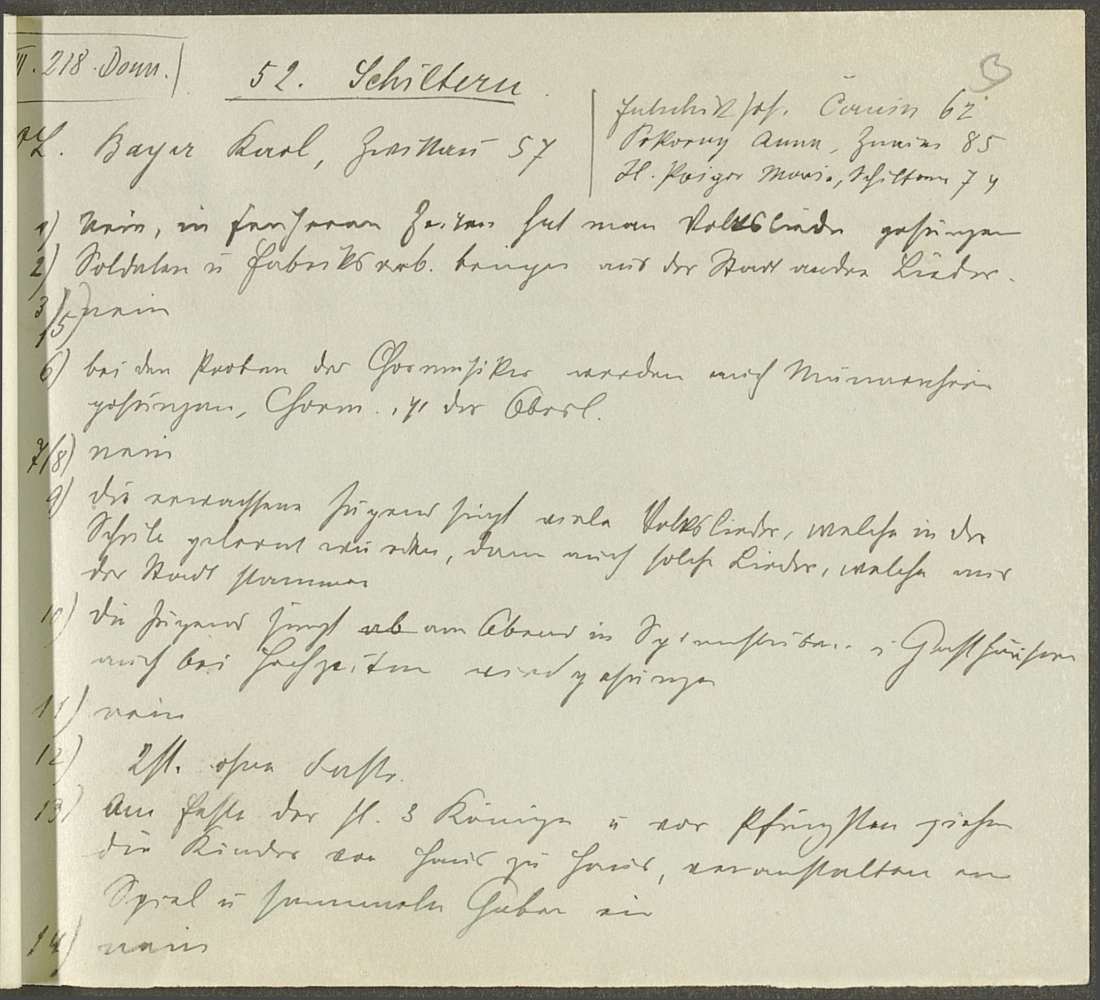 III. 218. Donn.
52. Schiltern
L. Bayer Karl, Zwittau 57
Jos. 62
Pokorny Anna, Znaim 85
H. Maria, Schiltern 74
1) Nein, in früheren Zeiten hat man Volkslieder gesungen
2) Soldaten u Fabriksarb. bringen aus der Stadt andre Lieder.
3/5) nein
6) bei den Proben der Chormusiker werden auch Männerchöre
gesungen, Chorm. ist der Oberl.
7/8) nein
9) die erwachsene Jugend singt viele Volkslieder, welche in der
Schule gelernt wurden, dann auch solche Lieder, welche aus
der Stadt stammen
10) die Jugend singt ab am Abend in Spinnstuben u Gasthäusern
auch bei Hochzeiten wird gesungen
11) nein
12) 2st. ohne
13) Am Feste der hl. 3 Könige u vor Pfingsten ziehen
die Kinder von Haus zu Haus, veranstalten ein
Spiel u sammeln Gaben ein
14) nein